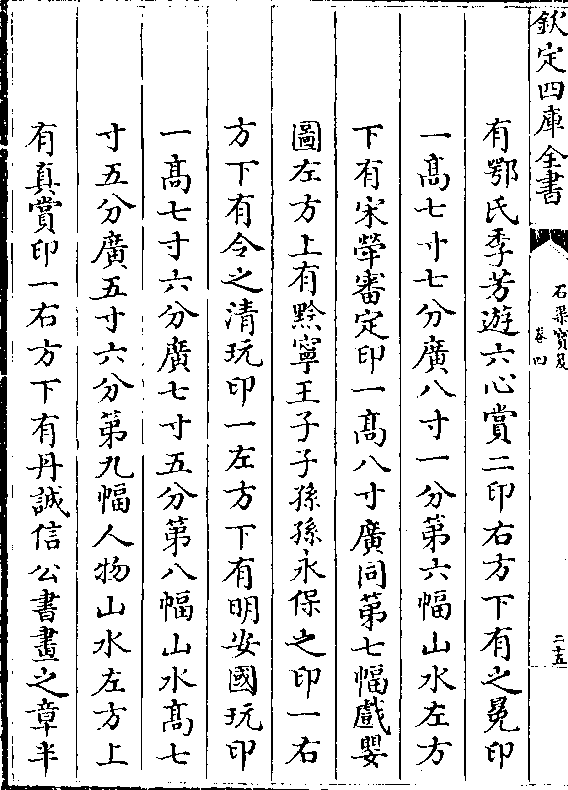 欽定四庫全書
石渠寶笈
卷四
二十五
有鄂氏季芳遊六心賞二印右方下有之冕印
一髙七寸七分廣八寸一分第六幅山水左方
下有宋犖審定印一髙八寸廣同第七幅戲嬰
圖左方上有黔寧王子子孫孫永保之印一右
方下有令之清玩印一左方下有明安國玩印
一髙七寸六分廣七寸五分第八幅山水髙七
寸五分廣五寸六分第九幅人物山水左方上
有真賞印一右方下有丹誠信公書畫之章半